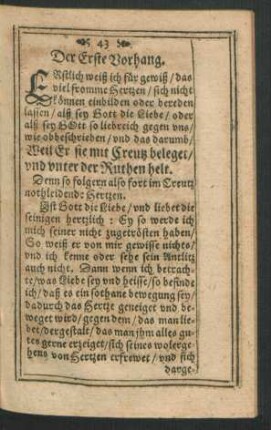 43
Der Erste Vorhang.
ERstlich weiß ich für gewiß / das
viel fromme Hertzen / sich nicht
können einbilden oder bereden
lassen / alß sey Gott die Liebe / oder
alß sey GOtt so liebreich gegen uns /
wie obbeschrieben / vnd das darumb /
Weil Er sie mit Creutz beleget /
vnd vnter der Ruthen helt.
Denn so folgern also fort im Creutz
nothleidend: Hertzen.
Ist Gott die Liebe / vnd liebet die
seinigen hertzlich : Ey so werde ich
mich seiner nicht zugetrösten haben /
So weiß er von mir gewisse nichts /
vnd ich kenne oder sehe sein Antlitz
auch nicht. Dann wenn ich betrach-
te / was Liebe sey vnd heisse / so befinde
ich / daß es ein sothane bewegung sey /
dadurch das Hertze geneiget vnd be-
weget wird / gegen dem / das man lie-
bet / dergestalt / das man ihm alles gu-
tes gerne erzeiget / sich seines wolerge-
hens von Hertzen erfrewet / vnd sich
darge-